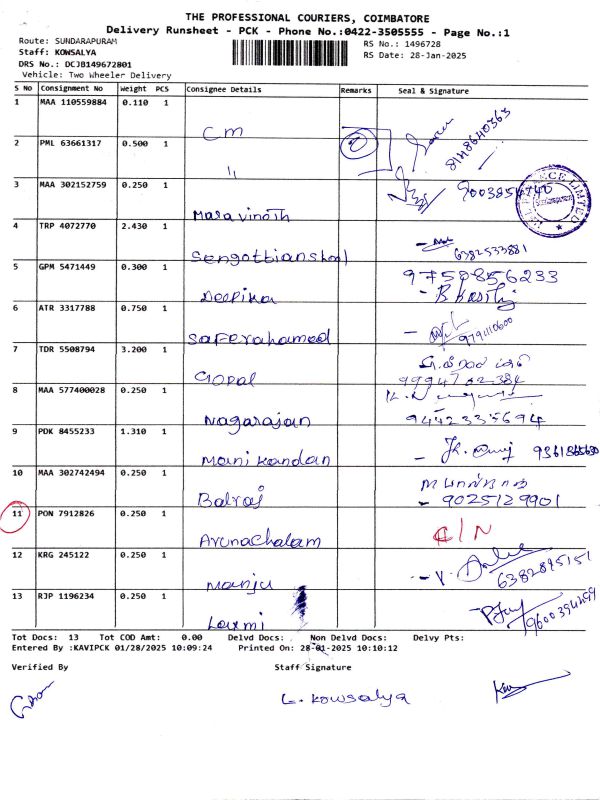 THE PROFESSIONAL COURIERS, COIMBATORE
Delivery Runsheet - PCK - Phone No.:0422-3505555 - Page No.:1
Route: SUNDARAPURAM
RS No.: 1496728
Staff: KOWSALYA
RS Date: 28-Jan-2025
DRS No.: DCJB149672801
Vehicle: Two Wheeler Delivery
S No Consignment No Weight PCS Consignee Details Remarks Seal & Signature
1 MAA 110559884 0.110 1 CM 8148640363
2 PML 63661317 0.500 1 "
3 MAA 302152759 0.250 1 Maravinoth
4 TRP 4072770 2.430 1 Sengottianshool 6382533881
5 GPM 5471449 0.300 1 Deepika 9750856233
6 ATR 3317788 0.750 1 Saferahamed 9791110600
7 TDR 5508794 3.200 1 Gopal 9994762384
8 MAA 577400028 0.250 1 Nagarajan 9442335694
9 PDK 8455233 1.310 1 Manikandan
10 MAA 302742494 0.250 1 Balraj - 9025129901
11 PON 7912826 0.250 1 Arunachalam
12 KRG 245122 0.250 1 Manju 6382895151
13 RJP 1196234 0.250 1 Laxmi 9600394259
Tot Docs: 13 Tot COD Amt: 0.00 Delvd Docs: Non Delvd Docs: Delvy Pts:
Entered By :KAVIPCK 01/28/2025 10:09:24 Printed On: 28-01-2025 10:10:12
Verified By Staff Signature
L. Kowsalya